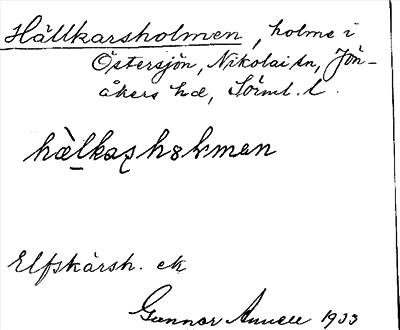 Hällkarsholmen, holme i
Östersjön, Nikolai sn, Jön-
åkers hd, Sörml. l.
hàlkaʂhɵlman
Elfskärsh. ek
Gunnar Annell 1933